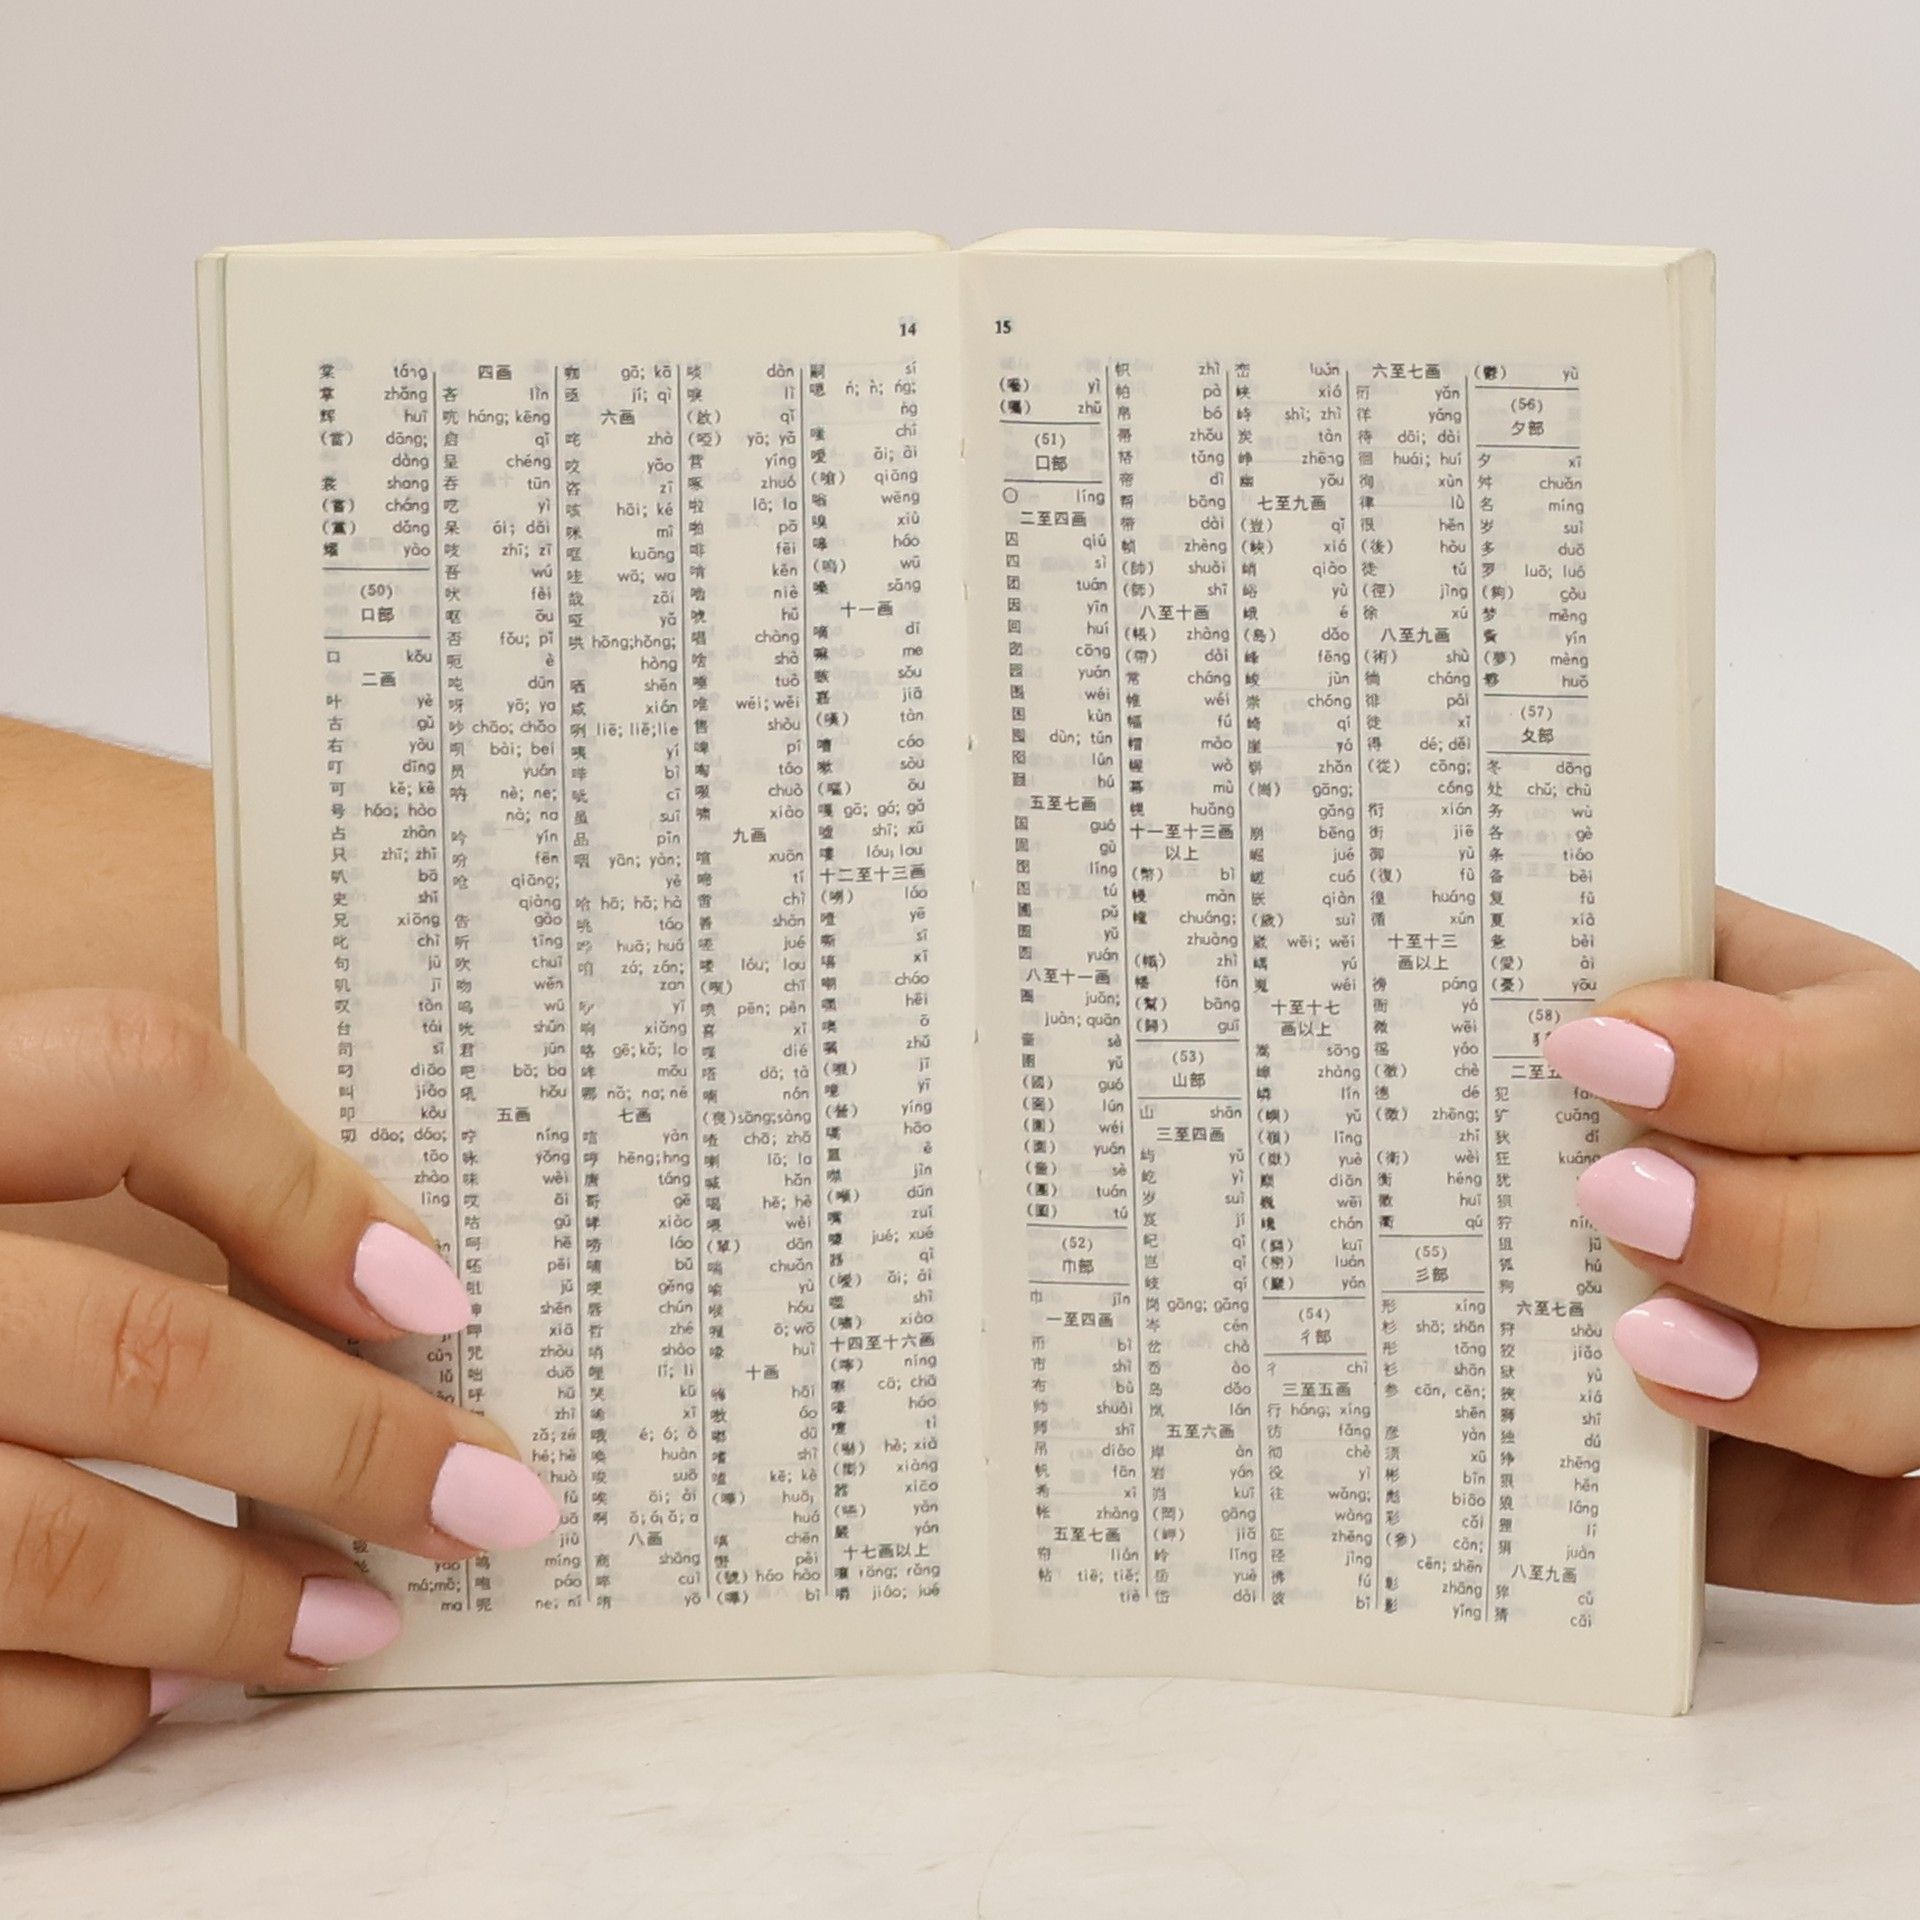 14
棠 táng
掌 zhǎng
辉 huī
(當) dāng;
dàng
裳 shang
(嘗) cháng
(黨) dǎng
耀 yào
(50)
口部
口 kǒu
二画
叶 yè
古 gǔ
右 yòu
叮 dīng
可 kě; kè
号 háo; hào
占 zhān
只 zhī; zhǐ
叭 bā
史 shǐ
兄 xiōng
叱 chì
句 jù
叽 jī
叹 tàn
台 tái
司 sī
叼 diāo
叫 jiào
叩 kòu
叨 dāo; dáo;
tāo
zhào
lìng
四画
吝 lìn
吭 háng; kēng
启 qǐ
呈 chéng
吞 tūn
呓 yì
呆 ái; dāi
吱 zhī; zī
吾 wú
吠 fèi
呕 ǒu
否 fǒu; pǐ
呃 è
吨 dūn
呀 yā; ya
吵 chāo; chǎo
呗 bài; bei
员 yuán
呐 nè; ne;
nà; na
吟 yín
吩 fēn
呛 qiāng;
qiàng
告 gào
听 tīng
吹 chuī
吻 wěn
呜 wū
吮 shǔn
君 jūn
吧 bā; ba
吼 hǒu
五画
咛 níng
咏 yǒng
味 wèi
哎 āi
咕 gū
呵 hē
呸 pēi
咀 jǔ
呻 shēn
呷 xiā
咒 zhòu
咄 duō
呼 hū
zhī
zǎ; zé
hé; hè
huò
fǔ
jiù
鸣 míng
咆 páo
呢 ne; ní
咖 gā; kā
亟 jí; qì
六画
咤 zhà
咬 yǎo
咨 zī
咳 hāi; ké
咪 mī
哐 kuāng
哇 wā; wa
哉 zāi
哑 yǎ
哄 hōng; hǒng;
hòng
哂 shěn
咸 xián
咧 liē; liě; lie
咦 yí
哔 bì
呲 cī
虽 suī
品 pǐn
咽 yān; yàn;
yè
哈 hā; hǎ; hà
咷 táo
哗 huā; huá
咱 zá; zán;
zan
咿 yī
响 xiǎng
咯 gē; kǎ; lo
哞 mōu
哪 nǎ; na; né
七画
唁 yàn
哼 hēng; hng
唐 táng
哥 gē
哮 xiào
唠 láo
哺 bǔ
哽 gěng
唇 chún
哲 zhé
哨 shào
哩 lǐ; li
哭 kū
唏 xī
哦 é; ó; ò
唤 huàn
唆 suō
唉 āi; ài
啊 ā; á; ǎ; a
八画
商 shāng
啐 cuì
唷 yō
啖 dàn
唳 lì
(啟) qǐ
(啞) yā; yǎ
营 yíng
啄 zhuó
啦 lā; la
啪 pā
啡 fēi
啃 kěn
啮 niè
唬 hǔ
唱 chàng
啥 shà
唾 tuò
唯 wéi; wěi
售 shòu
啤 pí
啕 táo
啜 chuò
啸 xiào
九画
喧 xuān
啼 tí
啻 chì
善 shàn
嗟 jué
喽 lóu; lou
(喫) chī
喷 pēn; pèn
喜 xǐ
喋 dié
嗒 dā; tà
喃 nán
(喪) sāng; sàng
喳 chā; zhā
喇 lǎ; la
喊 hǎn
喝 hē; hè
喂 wèi
(單) dān
喘 chuǎn
喻 yù
喉 hóu
喔 ō; wō
喙 huì
十画
嗨 hāi
嗷 áo
嘟 dū
嗜 shì
嗑 kē; kè
(嘩) huā;
huá
嗔 chēn
辔 pèi
(號) háo hào
(嗶) bì
嗣 sì
嗯 ń; ň; ńg;
ňg
嗤 chī
嗳 āi; ài
(嗆) qiāng
嗡 wēng
嗅 xiù
嗥 háo
(嗚) wū
嗓 sǎng
十一画
嘀 dī
嘛 me
嗾 sǒu
嘉 jiā
(嘆) tàn
嘈 cáo
嗽 sòu
(嘔) ǒu
嘎 gā; gá; gǎ
嘘 shī; xū
嘍 lóu; lou
十二至十三画
(嘮) láo
噎 yē
嘶 sī
嘻 xī
嘲 cháo
嘿 hēi
噢 ō
嘱 zhǔ
(嘰) jī
噫 yī
(營) yíng
嚆 hāo
噩 è
噤 jìn
(噸) dūn
嘴 zuǐ
噱 jué; xué
器 qì
(噯) ǎi; ài
噬 shì
(嘯) xiào
十四至十六画
(嚀) níng
嚓 cā; chā
嚎 háo
嚏 tì
(嚇) hè; xià
(嚮) xiàng
嚣 xiāo
(嚥) yàn
嚴 yán
十七画以上
嚷 rāng; rǎng
嚼 jiáo; jué
15
(囈) yì
(囑) zhǔ
(51)
囗部
〇 líng
二至四画
囚 qiú
四 sì
团 tuán
因 yīn
回 huí
囱 cōng
园 yuán
围 wéi
困 kùn
囤 dùn; tún
囵 lún
囫 hú
五至七画
国 guó
固 gù
囹 líng
图 tú
圃 pǔ
圄 yǔ
圆 yuán
八至十一画
圈 juān;
juàn; quān
啬 sè
圉 yǔ
(國) guó
(圇) lún
(圍) wéi
(園) yuán
(嗇) sè
(團) tuán
(圖) tú
(52)
巾部
巾 jīn
一至四画
币 bì
市 shì
布 bù
帅 shuài
师 shī
吊 diào
帆 fān
希 xī
帐 zhàng
五至七画
帘 lián
帖 tiē; tiě;
tiè
帜 zhì
帕 pà
帛 bó
帚 zhǒu
帑 tǎng
帝 dì
帮 bāng
带 dài
帧 zhèng
(帥) shuài
(師) shī
八至十画
(帳) zhàng
(帶) dài
常 cháng
帷 wéi
幅 fú
帽 mào
幄 wò
幕 mù
幌 huǎng
十一至十三画
以上
(幣) bì
幔 màn
幢 chuáng;
zhuàng
(幟) zhì
幡 fān
(幫) bāng
(歸) guī
(53)
山部
山 shān
三至四画
屿 yǔ
屹 yì
岁 suì
岌 jí
屺 qǐ
岂 qǐ
岐 qí
岗 gāng; gǎng
岑 cén
岔 chà
岙 ào
岛 dǎo
岚 lán
五至六画
岸 àn
岩 yán
岿 kuī
(岡) gāng
(岬) jiǎ
岭 lǐng
岳 yuè
岱 dài
峦 luán
峡 xiá
峙 shì; zhì
炭 tàn
峥 zhēng
幽 yōu
七至九画
(豈) qǐ
(峽) xiá
峭 qiào
峪 yù
峨 é
(島) dǎo
峰 fēng
峻 jùn
崇 chóng
崎 qí
崖 yá
崭 zhǎn
(崗) gāng;
gǎng
崩 bēng
崛 jué
嵯 cuó
嵌 qiàn
(歲) suì
崴 wēi; wěi
嵎 yú
嵬 wéi
十至十七
画以上
嵩 sōng
嶂 zhàng
嶙 lín
(嶼) yǔ
(嶺) lǐng
(嶽) yuè
巅 diān
巍 wēi
巉 chán
(巋) kuī
(巒) luán
(巖) yán
(54)
彳部
彳 chì
三至五画
行 háng; xíng
彷 fǎng
彻 chè
役 yì
往 wǎng;
wàng
征 zhēng
径 jìng
彿 fú
彼 bǐ
六至七画
衍 yǎn
徉 yáng
待 dāi; dài
徊 huái; huí
徇 xùn
律 lǜ
很 hěn
(後) hòu
徒 tú
(徑) jìng
徐 xú
八至九画
(術) shù
徜 cháng
徘 pái
徙 xǐ
得 dé; děi
(從) cōng;
cóng
衔 xián
街 jiē
御 yù
(復) fù
徨 huáng
循 xún
十至十三
画以上
徬 páng
衙 yá
微 wēi
徭 yáo
(徹) chè
德 dé
(徵) zhēng;
zhǐ
(衛) wèi
衡 héng
徽 huī
衢 qú
(55)
彡部
形 xíng
杉 shā; shān
彤 tóng
衫 shān
参 cān, cēn;
shēn
彦 yàn
须 xū
彬 bīn
彪 biāo
彩 cǎi
(參) cān;
cēn; shēn
彰 zhāng
影 yǐng
(鬱) yù
(56)
夕部
夕 xī
舛 chuǎn
名 míng
岁 suì
多 duō
罗 luō; luó
(夠) gòu
梦 mèng
夤 yín
(夢) mèng
夥 huǒ
(57)
夂部
冬 dōng
处 chǔ; chù
务 wù
各 gè
条 tiáo
备 bèi
复 fù
夏 xià
惫 bèi
(愛) ài
(憂) yōu
(58)
犯
犷 guǎng
狄 dí
狂 kuáng
犹
狈
狞
狙 jū
狐 hú
狗 gǒu
六至七画
狩 shòu
狡 jiǎo
狱 yù
狭 xiá
狮 shī
独 dú
狰 zhēng
狠 hěn
狼 láng
狸 lí
狷 juàn
八至九画
猝 cù
猜 cāi